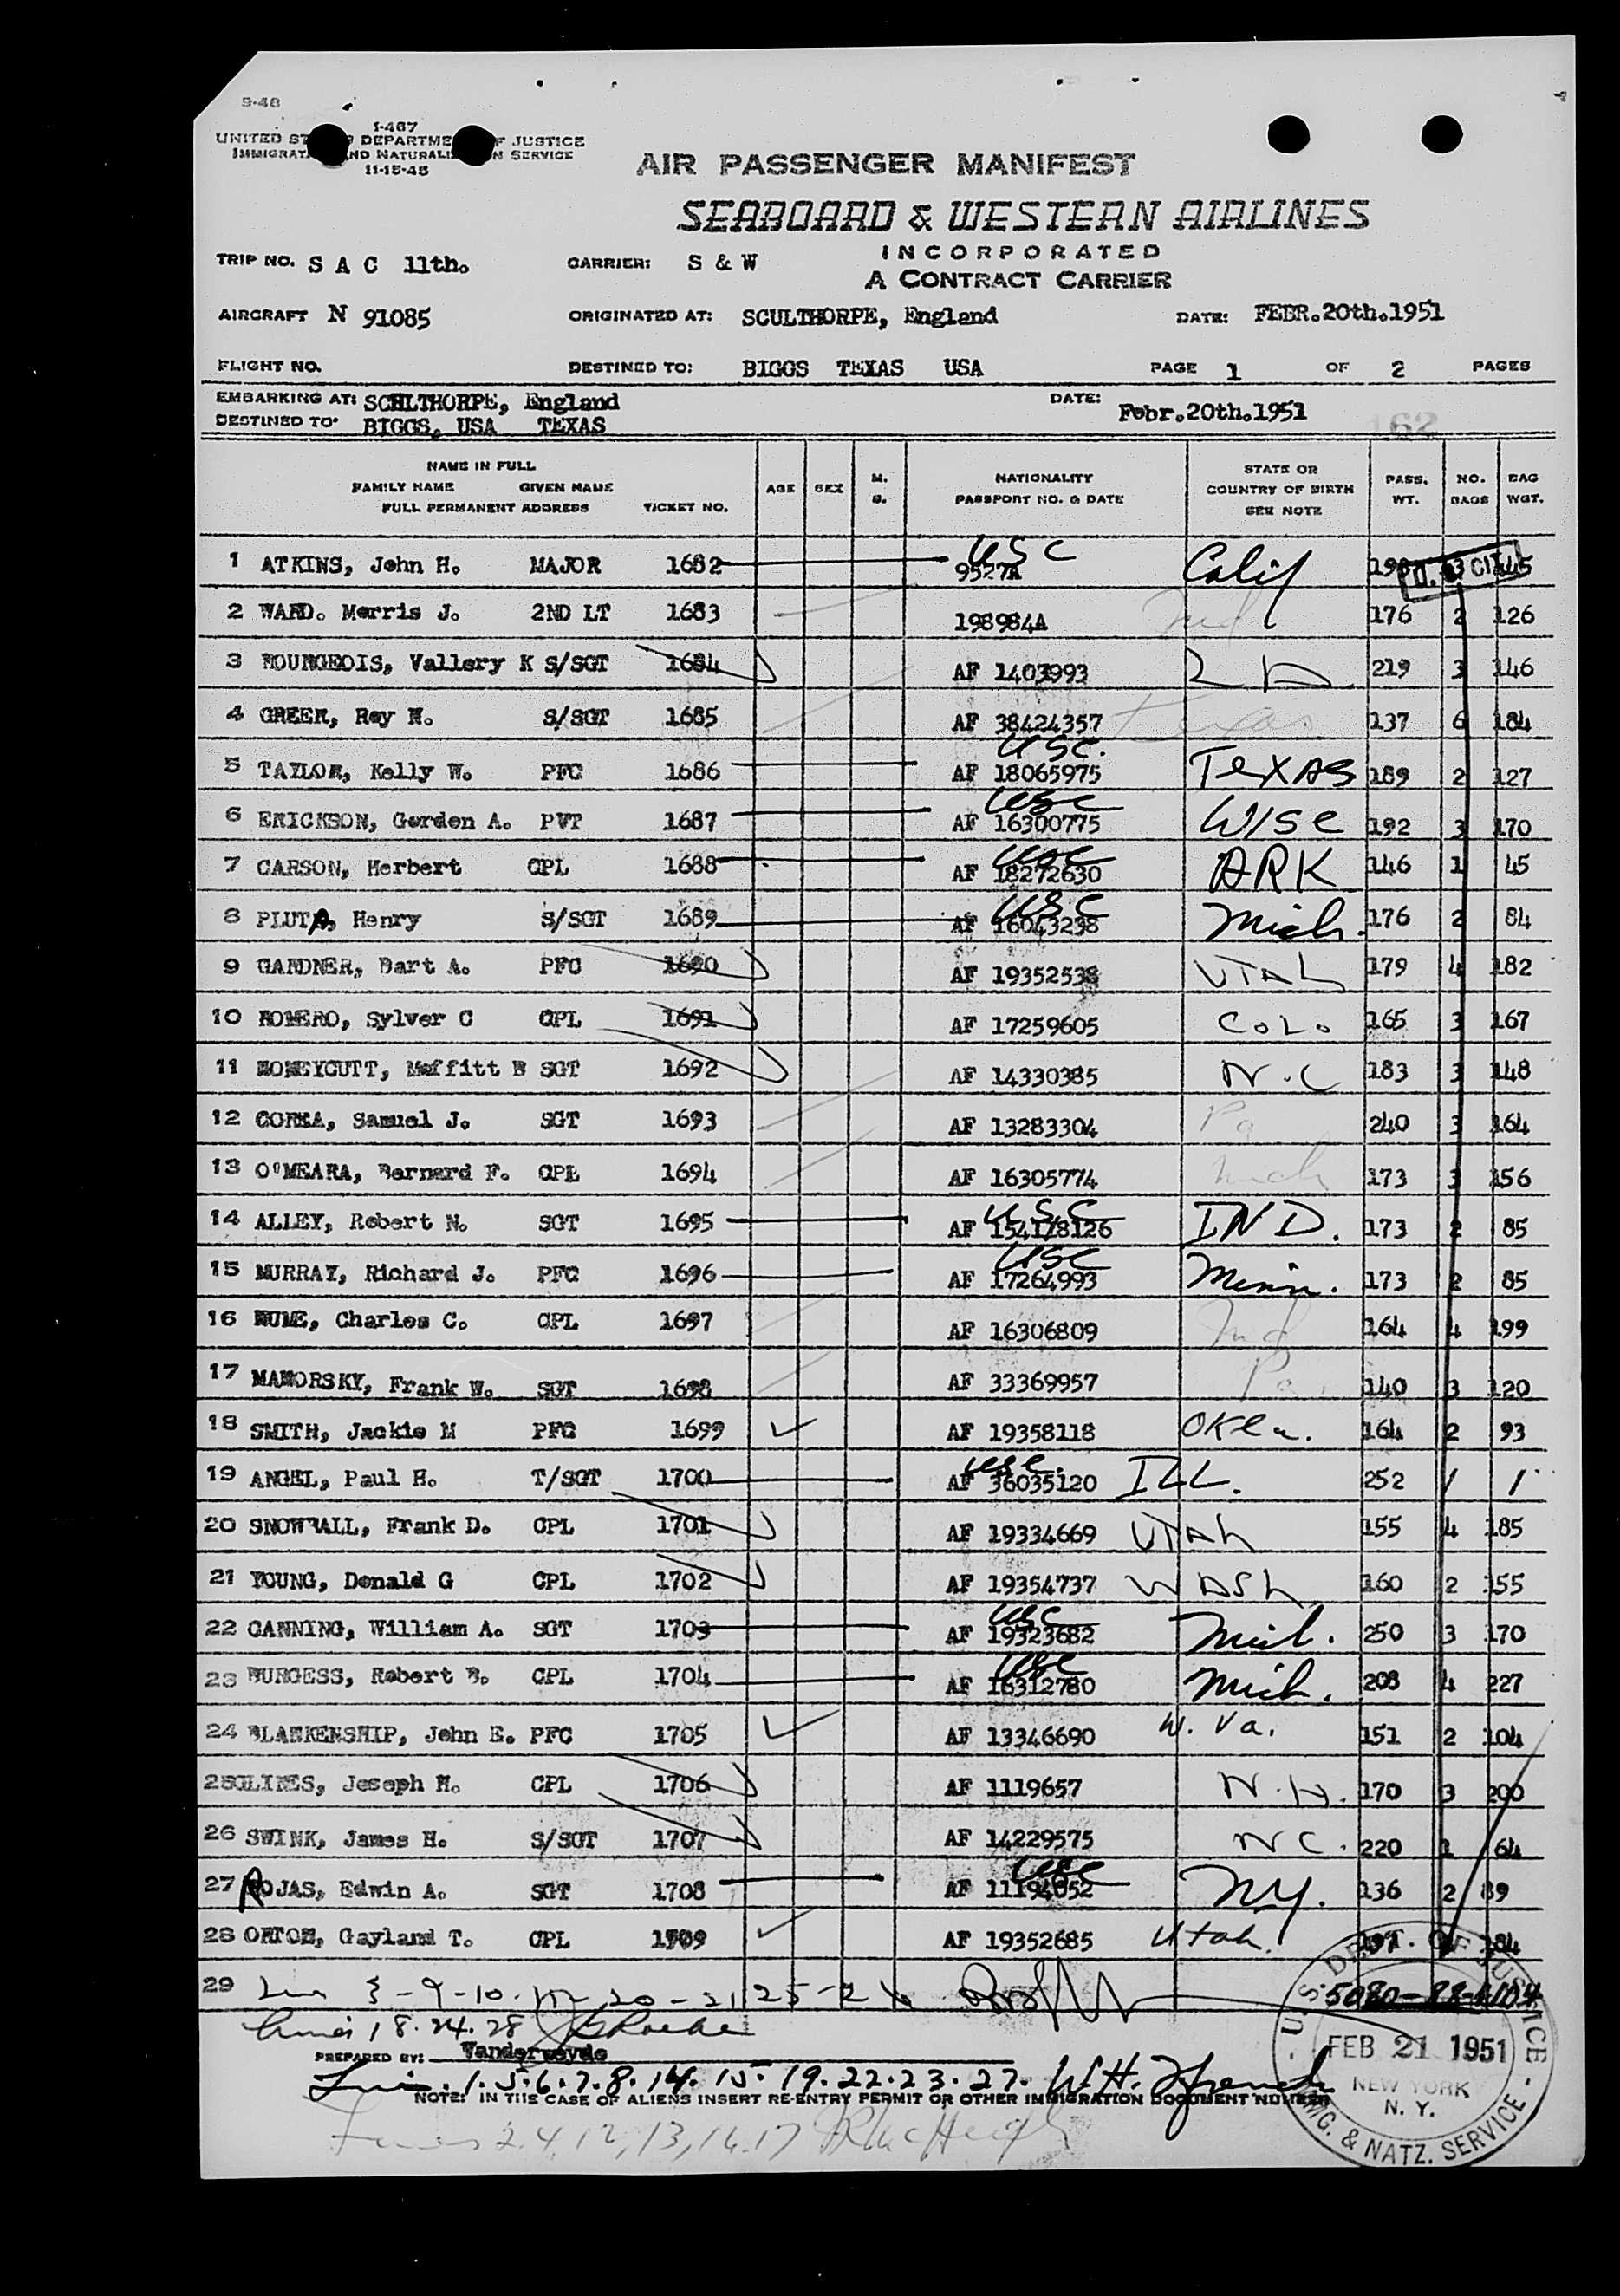 9-48
I-467
UNITED ST DEPARTME F JUSTICE
IMMIGRAT ND NATURALI N SERVICE
11-15-45
AIR PASSENGER MANIFEST
SEABOARD & WESTERN AIRLINES
INCORPORATED
A CONTRACT CARRIER
TRIP NO. S A C 11th. CARRIER: S & W
AIRCRAFT N 91085 ORIGINATED AT: SCULTHORPE, England DATE: FEBR.20th.1951
FLIGHT NO. DESTINED TO: BIGGS TEXAS USA PAGE 1 OF 2 PAGES
EMBARKING AT: SCULTHORPE, England DATE: Febr.20th.1951
DESTINED TO: BIGGS, USA TEXAS
162
NAME IN FULL
FAMILY NAME GIVEN NAME
FULL PERMANENT ADDRESS TICKET NO. AGE SEX M. S. NATIONALITY PASSPORT NO. & DATE STATE OR COUNTRY OF BIRTH SEE NOTE PASS. WT. NO. BAGS BAG WGT.
1 ATKINS, John H. MAJOR 1682 USC 9527A Calif 198 3 145 U.S. CIT
2 WARD. Morris J. 2ND LT 1683 198984A Ind 176 2 126
3 BOURGEOIS, Vallery K S/SGT 1684 AF 1403993 LA. 219 3 146
4 GREER, Roy N. S/SGT 1685 AF 38424357 Texas 137 6 184
5 TAYLOR, Kelly W. PFC 1686 USC. AF 18065975 TEXAS 189 2 127
6 ERICKSON, Gordon A. PVT 1687 USC AF 16300775 WISC 192 3 170
7 CARSON, Herbert CPL 1688 USC AF 18272630 ARK 146 1 45
8 PLUTA, Henry S/SGT 1689 USC AF 16043238 Mich. 176 2 84
9 GARDNER, Dart A. PFC 1690 AF 19352538 UTAH 179 4 182
10 ROMERO, Sylver C CPL 1691 AF 17259605 COLO 165 3 167
11 HONEYCUTT, Moffitt B SGT 1692 AF 14330385 N.C 183 3 148
12 Samuel J. SGT 1693 AF 13283304 Pa 240 3 164
13 O'MEARA, Bernard F. CPL 1694 AF 16305774 Mich 173 3 156
14 ALLEY, Robert N. SGT 1695 USC AF 154178126 IND. 173 2 85
15 MURRAY, Richard J. PFC 1696 USC AF 17264993 Minn. 173 2 85
16 HUME, Charles C. CPL 1697 AF 16306809 Ind 164 4 199
17 MAMORSKY, Frank W. SGT 1698 AF 33369957 Pa. 140 3 120
18 SMITH, Jackie M PFC 1699 AF 19358118 Okla. 164 2 93
19 ANGEL, Paul H. T/SGT 1700 USC. AF 36035120 ILL. 252 / /
20 SNOWBALL, Frank D. CPL 1701 AF 19334669 UTAH 155 4 185
21 YOUNG, Donald G CPL 1702 AF 19354737 WASH 160 2 155
22 CANNING, William A. SGT 1703 USC AF 19323682 Mich. 250 3 170
23 BURGESS, Robert B. CPL 1704 USC AF 16312780 Mich. 208 4 227
24 BLANKENSHIP, John E. PFC 1705 AF 13346690 W. Va. 151 2 104
25 GLINES, Joseph M. CPL 1706 AF 1119657 N.H. 170 3 200
26 SWINK, James H. S/SGT 1707 AF 14229575 NC. 220 1 64
27 ROJAS, Edwin A. SGT 1708 USC AF 11194052 NY. 136 2 89
28 ORTON, Gayland T. CPL 1709 AF 19352685 Utah. 191 184
29 Lines 3-9-10-11-20-21 25-26 5080-82-4104
Lines 18.24.28
PREPARED BY: Vanderweyde
Lines. 1.5.6.7.8.14.15.19.22.23.27. W.H. French
NOTE: IN THE CASE OF ALIENS INSERT RE-ENTRY PERMIT OR OTHER IMMIGRATION DOCUMENT NUMBER
Lines 2.4,12,13,16.17
U.S. DEPT. OF JUSTICE
FEB 21 1951
NEW YORK
N. Y.
IMMG. & NATZ. SERVICE